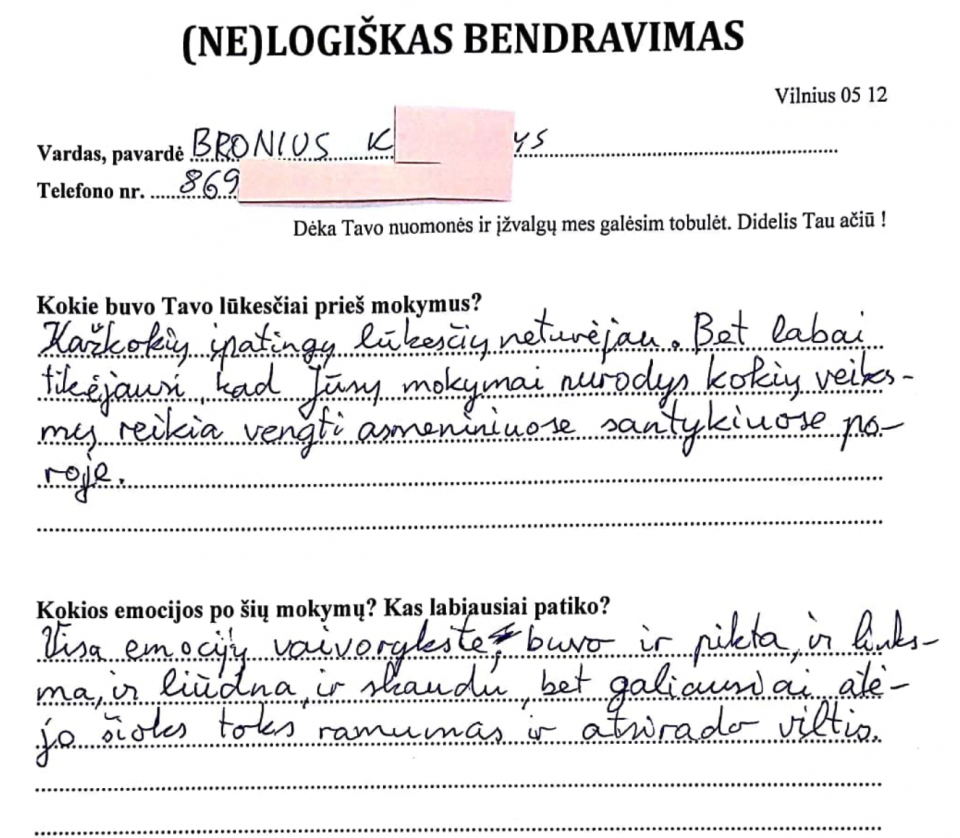 (NE)LOGIŠKAS BENDRAVIMAS
Vilnius 05 12
Vardas, pavardė BRONIUS K YS
Telefono nr. 869
Dėka Tavo nuomonės ir įžvalgų mes galėsim tobulėt. Didelis Tau ačiū !
Kokie buvo Tavo lūkesčiai prieš mokymus?
Kažkokių ipatingų lūkesčių neturėjau. Bet labai
tikėjausi, kad Jūsų mokymai nurodys kokių veiks-
mų reikia vengti asmeniniuose santykiuose po-
roje.
Kokios emocijos po šių mokymų? Kas labiausiai patiko?
Visa emocijų vaivorykštė, buvo ir pikta, ir links-
ma, ir liūdna, ir skaudu, bet galiausiai atė-
jo šioks toks ramumas ir atsirado viltis.